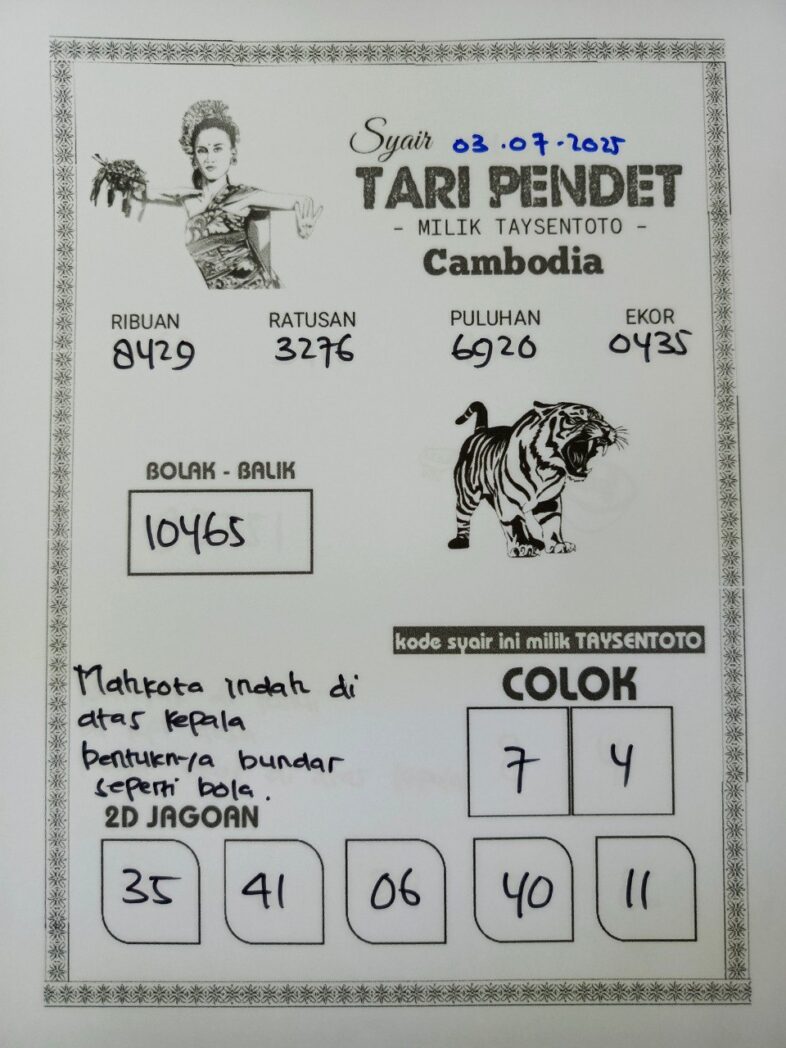 Syair 03.07.2025
TARI PENDET
- MILIK TAYSENTOTO -
Cambodia
RIBUAN RATUSAN PULUHAN EKOR
8429 3276 6920 0435
BOLAK - BALIK
10465
kode syair ini milik TAYSENTOTO
COLOK
7 4
Mahkota indah di
atas kepala
bentuknya bundar
seperti bola.
2D JAGOAN
35 41 06 40 11